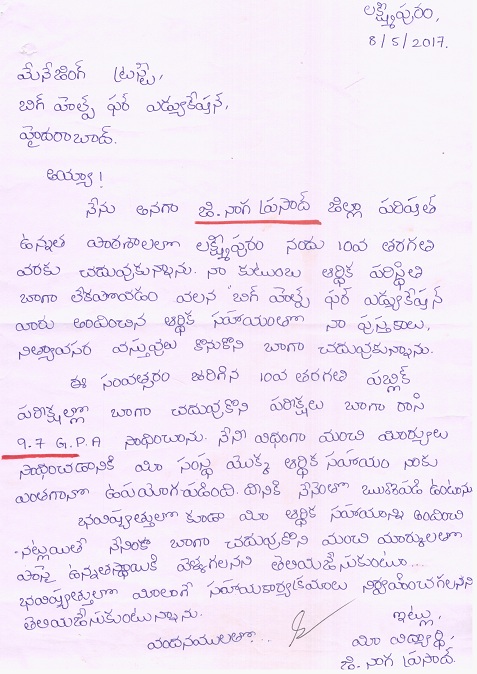 లక్ష్మీపురం,
8/5/2017.
మేనేజింగ్ ట్రస్టీ,
బిగ్ హెల్ప్ ఫర్ ఎడ్యుకేషన్,
హైదరాబాద్.
అయ్యా!
నేను అనగా జి. నాగ ప్రసాద్ జిల్లా పరిషత్
ఉన్నత పాఠశాలలో లక్ష్మీపురం నందు 10వ తరగతి
వరకు చదువుకున్నాను. నా కుటుంబ ఆర్థిక పరిస్థితి
బాగా లేకపోవడం వలన "బిగ్ హెల్ప్ ఫర్ ఎడ్యుకేషన్
వారు అందించిన ఆర్థిక సహాయంతో నా పుస్తకాలు,
నిత్యావసర వస్తువులు కొనుకొని బాగా చదువుకున్నాను.
ఈ సంవత్సరం జరిగిన 10వ తరగతి పబ్లిక్
పరీక్షల్లో బాగా చదువుకొని పరీక్షలు బాగా రాసి
9.7 G.P.A సాధించాను. నేనీ విధంగా మంచి మార్కులు
సాధించడానికి మీ సంస్థ యొక్క ఆర్థిక సహాయం నాకు
ఎంతగానో ఉపయోగపడింది. దీనికి నేనెంతో ఋణపడి ఉంటాను
భవిష్యత్తులో కూడా మీ ఆర్థిక సహాయాన్ని అందించి
-నట్లయితే నేనింకా బాగా చదువుకొని మంచి మార్కులతో
పాస్ఐ ఉన్నతస్థాయికి వెళ్ళగలనని తెలియజేసుకుంటూ...
భవిష్యత్తులో మీలాగే సహాయకార్యక్రమాలు నిర్వహించగలనని
తెలియజేసుకుంటున్నాను.
వందనములతో...
ఇట్లు,
మీ విద్యార్థి,
జి. నాగ ప్రసాద్.